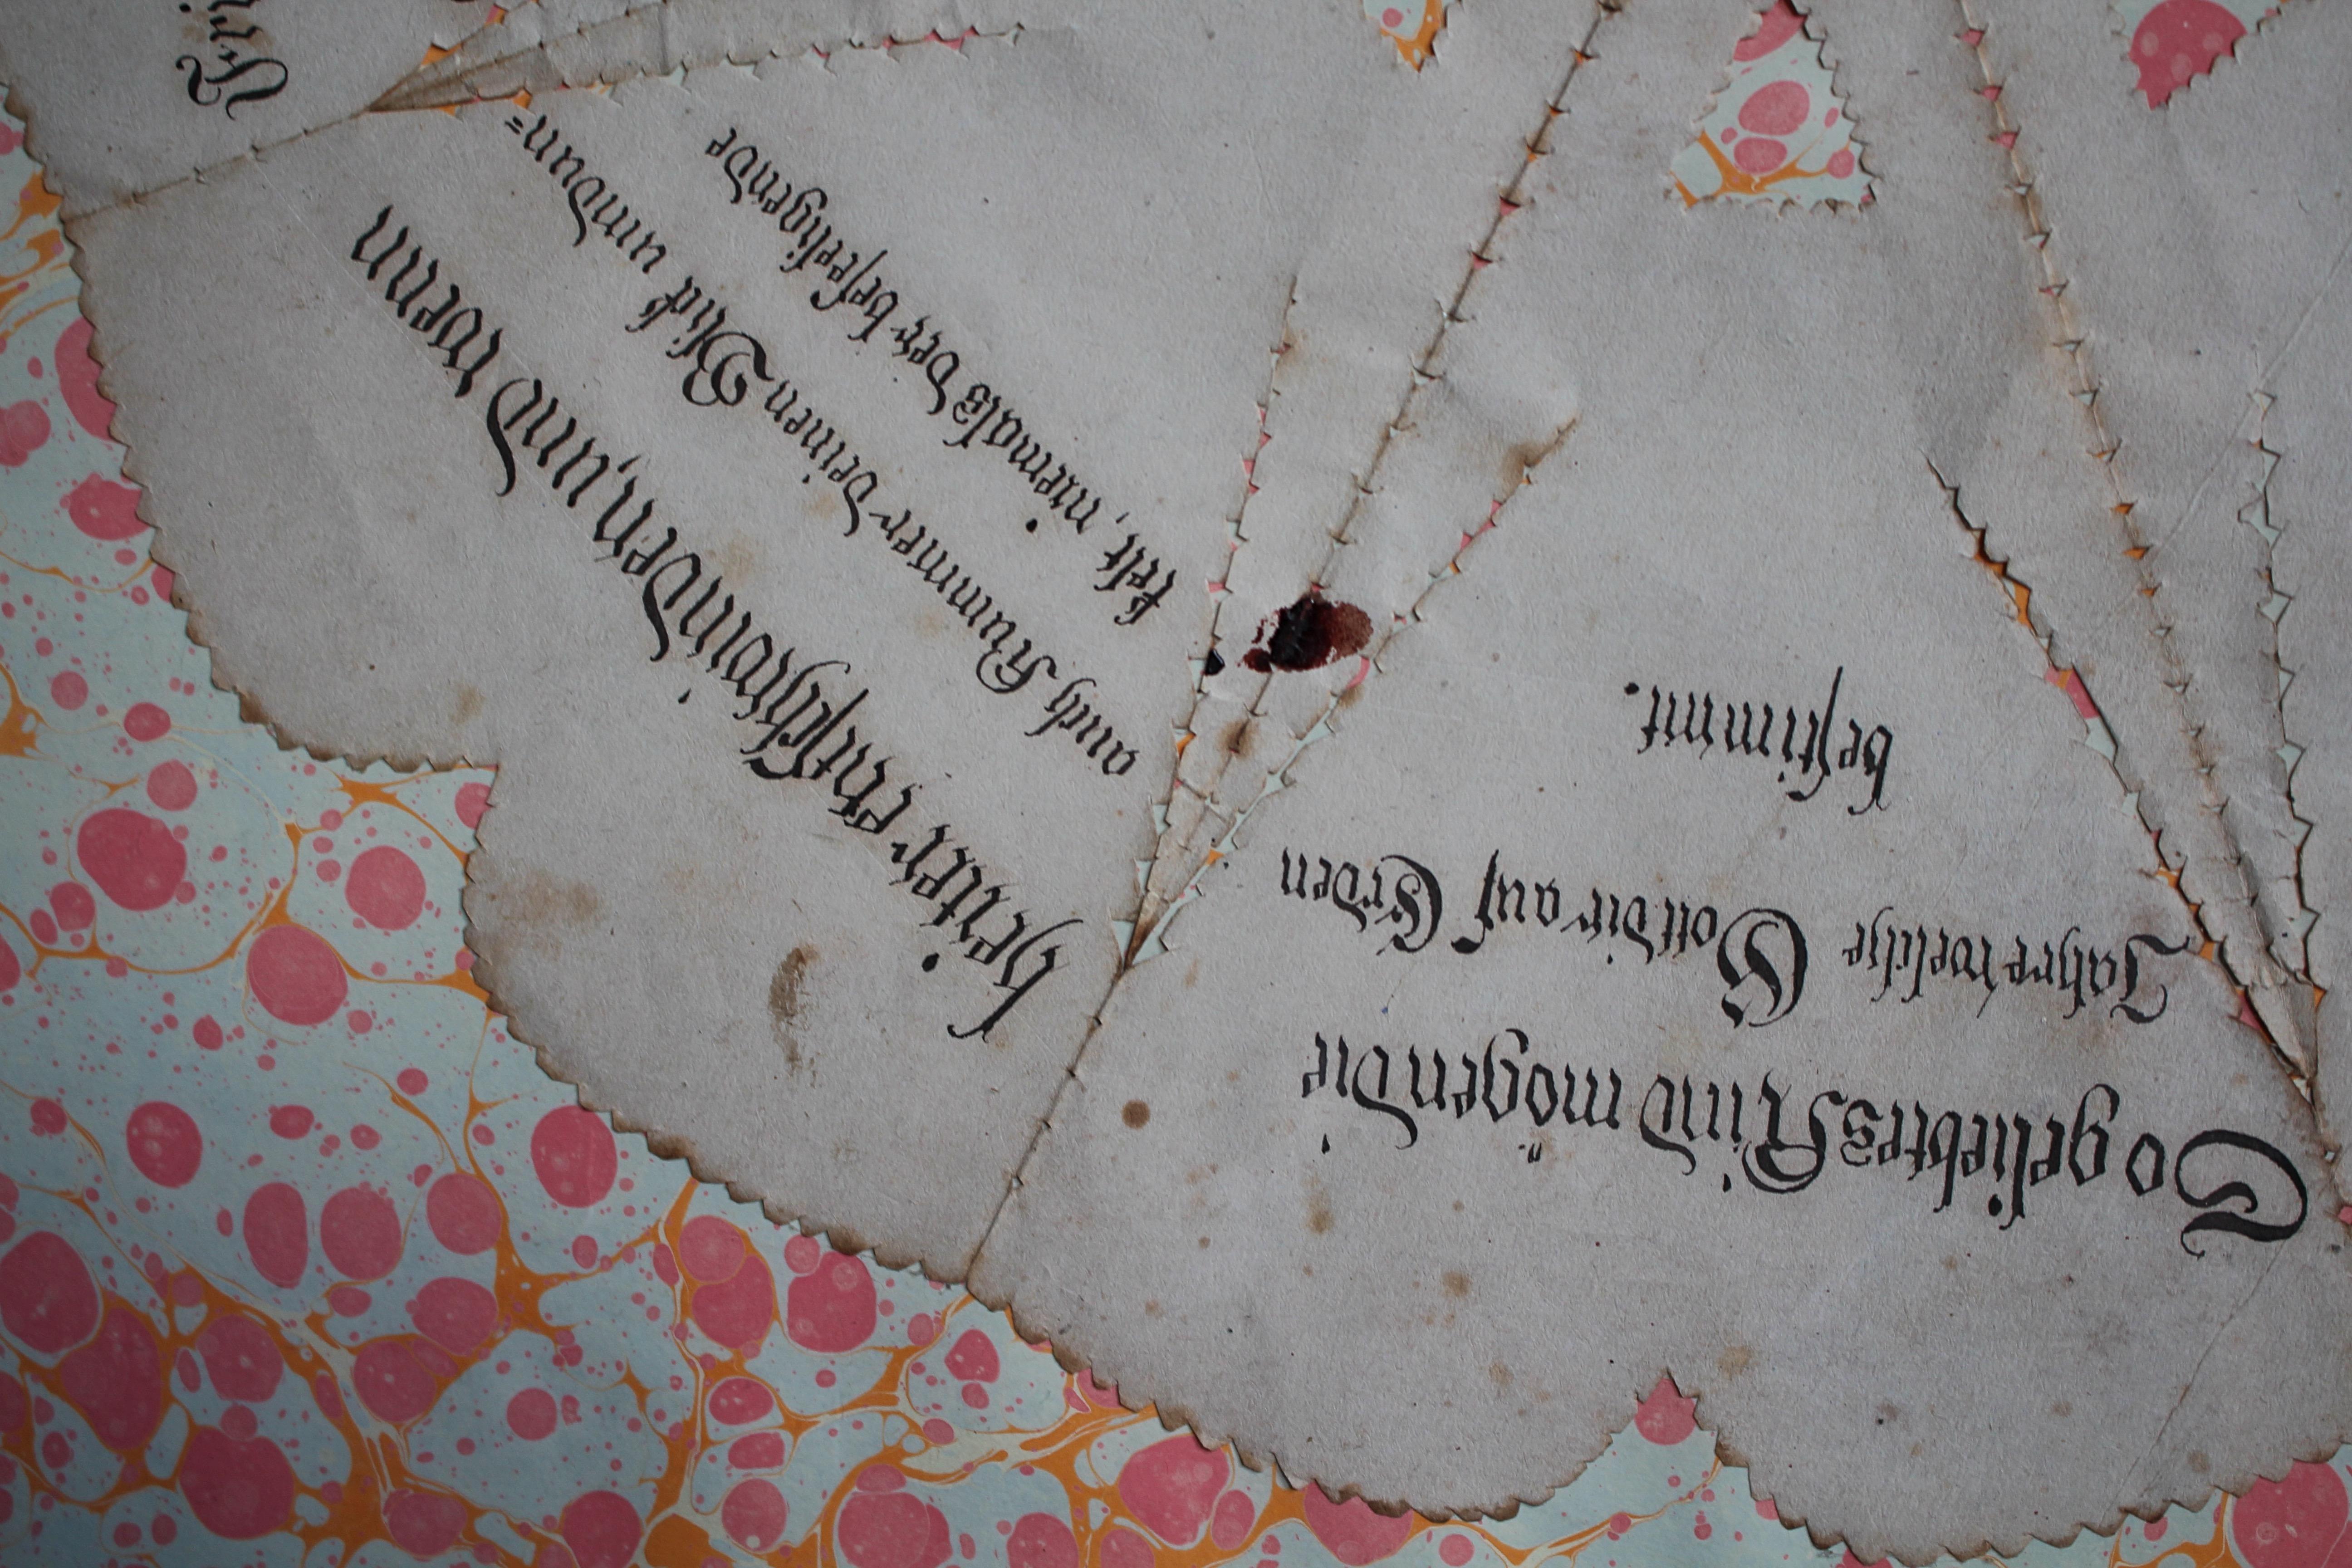 So geliebtes Kind mögen die
Jahre welche Gott dir auf Erden
bestimmt.
heiter entschwinden, und wenn
auch Kummer deinen Blick umdun=
kelt, niemals der beseeligende